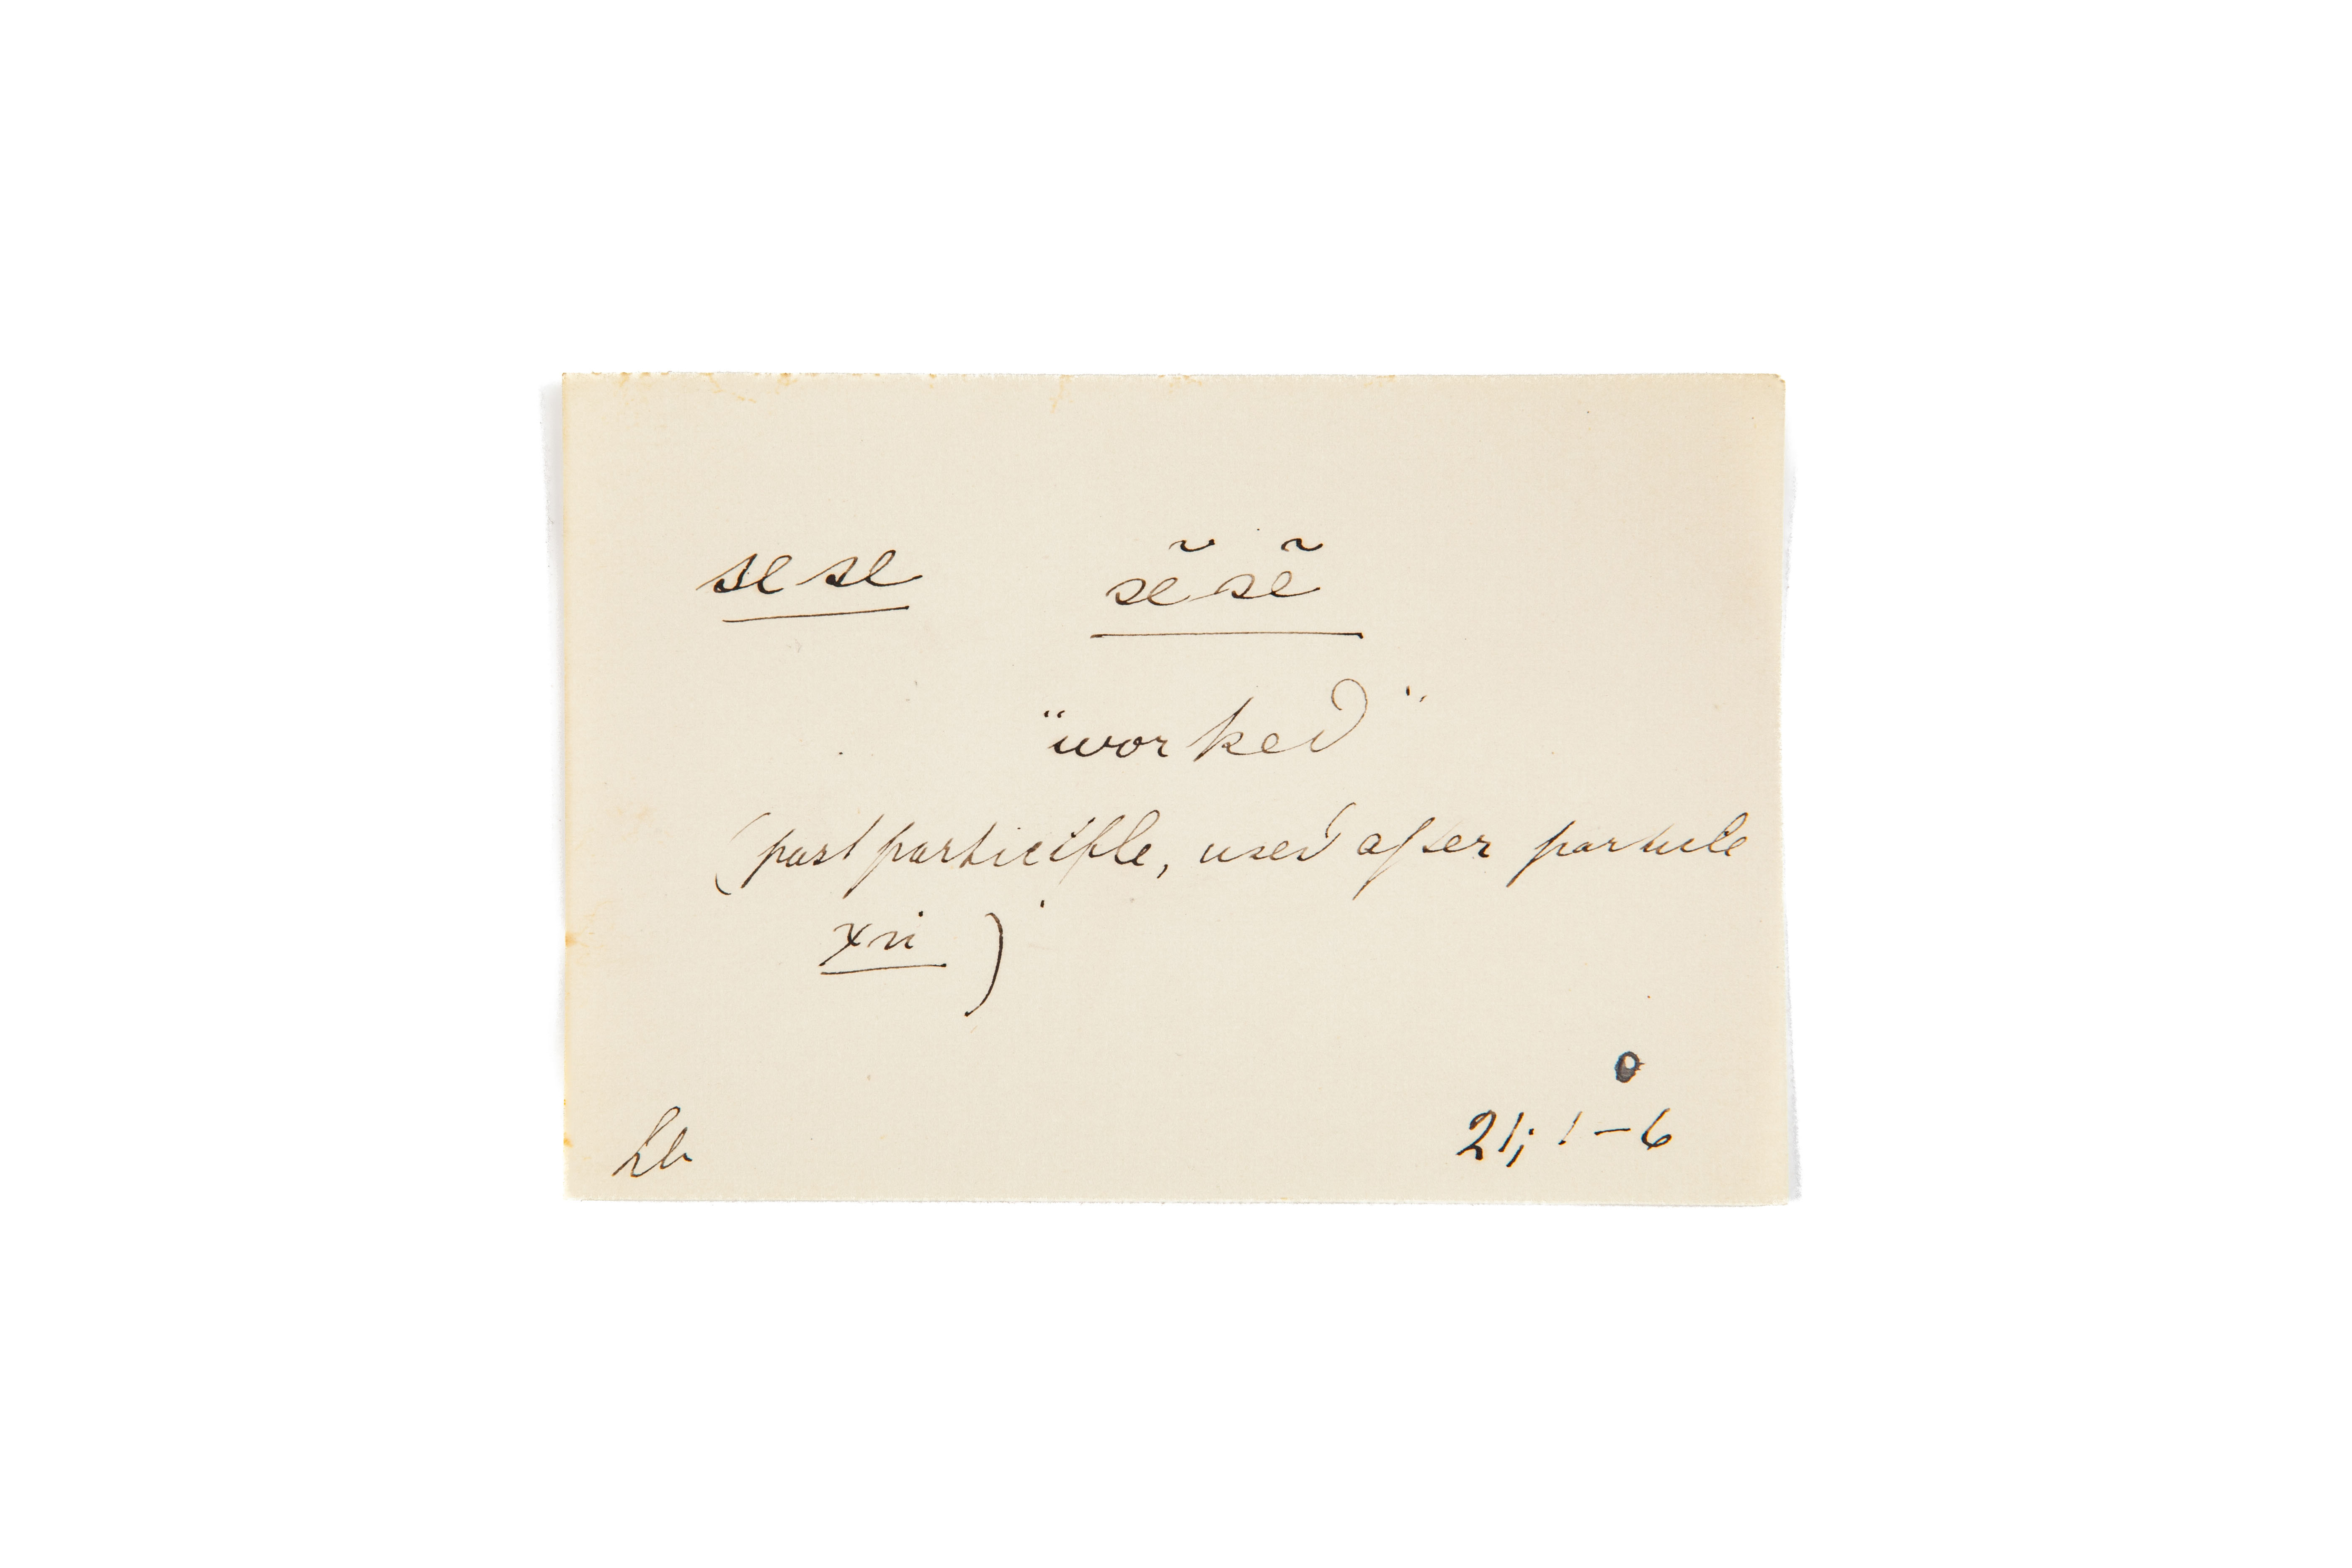 se se sẽ sẽ
"worked"
(past participle, used after particle
xii )
21; 1-6